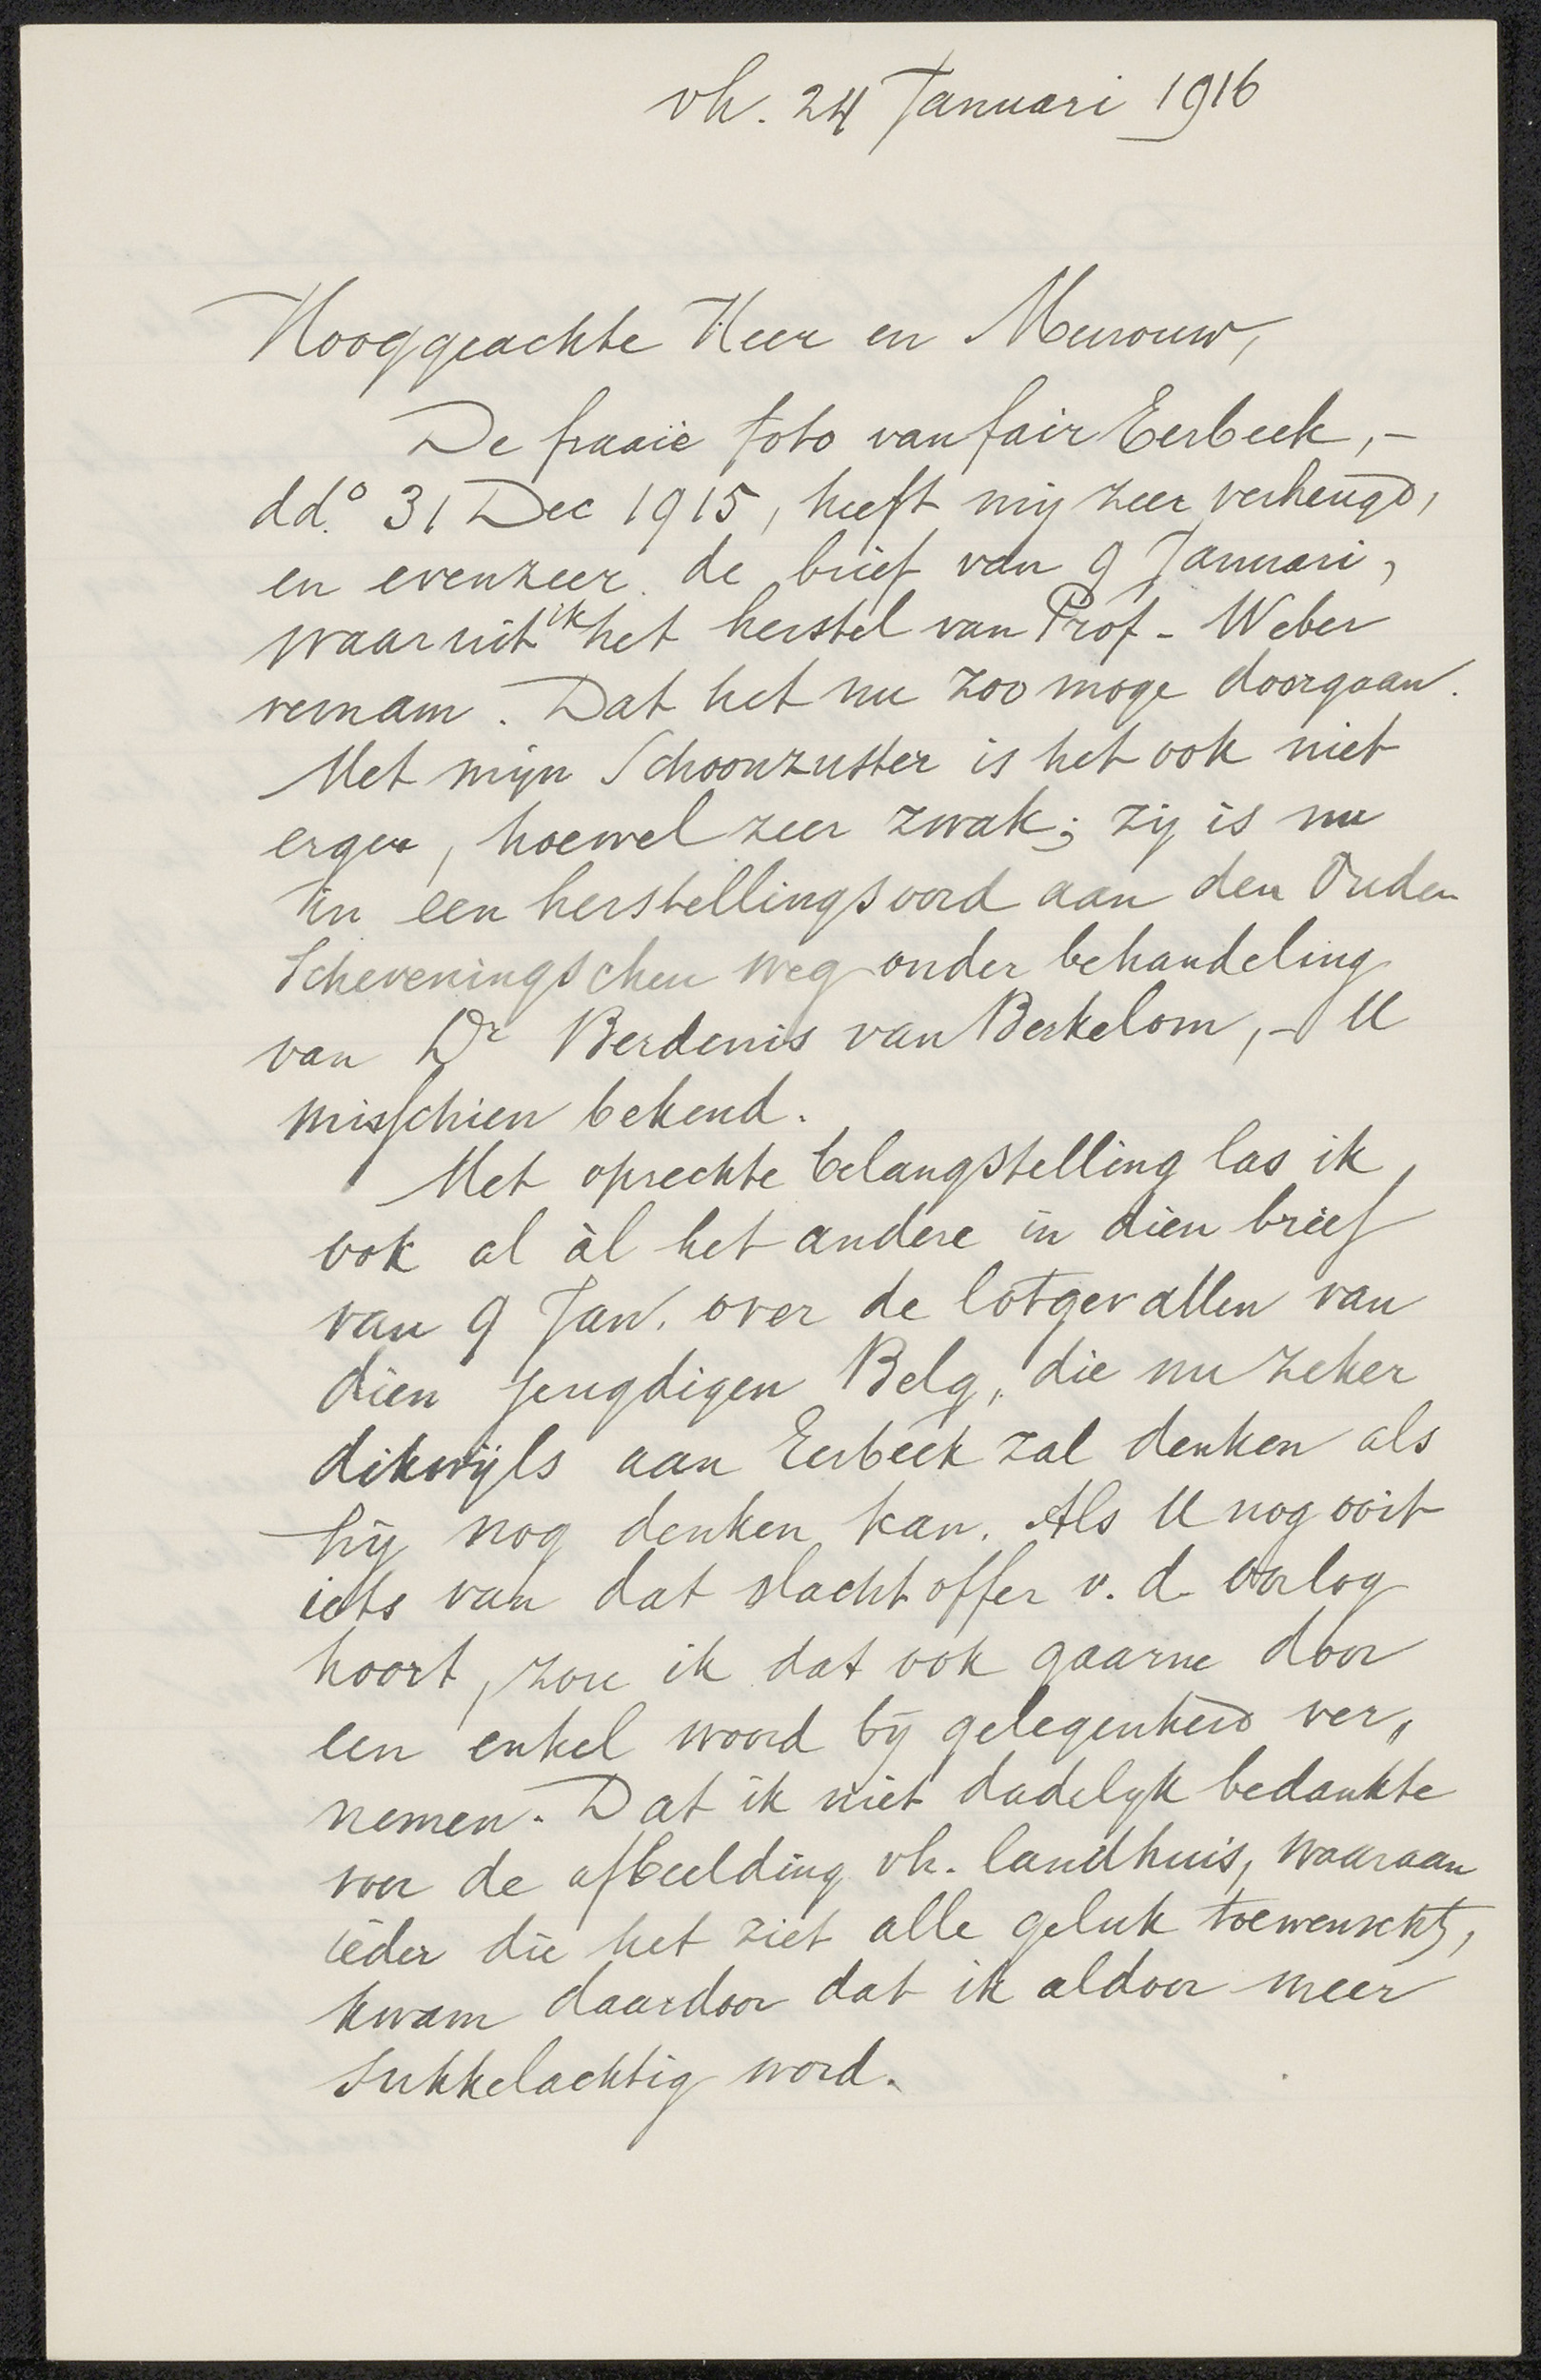 vh. 24 Januari 1916
Hooggeachte Heer en Mevrouw,
De fraaie foto van fair Eerbeek, -
dd.º 31 Dec 1915, heeft mij zeer verheugd,
en evenzeer de brief van 9 Januari,
waaruit ik het herstel van Prof. Weber
vernam. Dat het nu zoo moge doorgaan.
Met mijn Schoonzuster is het ook niet
erger, hoewel zeer zwak; zij is nu
in een herstellingsoord aan den Ouden
Scheveningschen weg onder behandeling
van Dr Berdenis van Berkelom, - U
misschien bekend.
Met oprechte belangstelling las ik
ook al àl het andere in dien brief
van 9 Jan. over de lotgevallen van
dien jeugdigen Belg, die nu zeker
dikwijls aan Eerbeek zal denken als
hij nog denken kan. Als U nog ooit
iets van dat slachtoffer v. d. oorlog
hoort, zou ik dat ook gaarne door
een enkel woord bij gelegenheid ver„
nemen. Dat ik niet dadelijk bedankte
voor de afbeelding vh. landhuis, waaraan
ieder die het ziet alle geluk toewenscht,
kwam daardoor dat ik aldoor meer
sukkelachtig word.